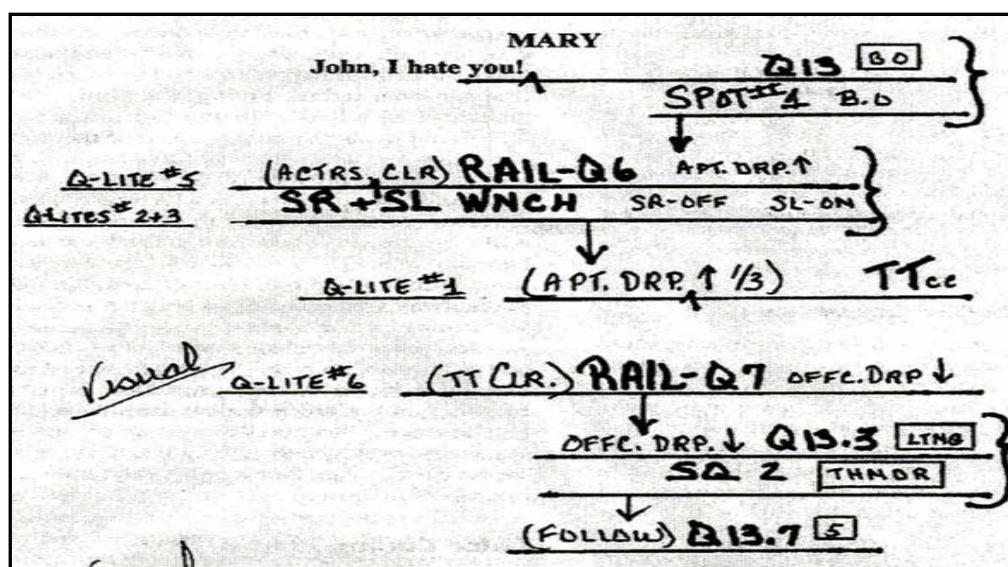 MARY
John, I hate you! Q13 BO
SPOT #1 B.O
Q-LITE #5 (ACTRS, CLR) RAIL-Q6 APT. DRP. ↑
Q-LITES #2+3 SR + SL WNCH SR-OFF SL-ON
Q-LITE #1 (APT. DRP. ↑ 1/3) TTcc
Visual Q-LITE #6 (TT CLR.) RAIL-Q7 OFFC. DRP ↓
OFFC. DRP. ↓ Q13.3 LTNG
SQ 2 THNDR
(FOLLOW) Q13.7 5